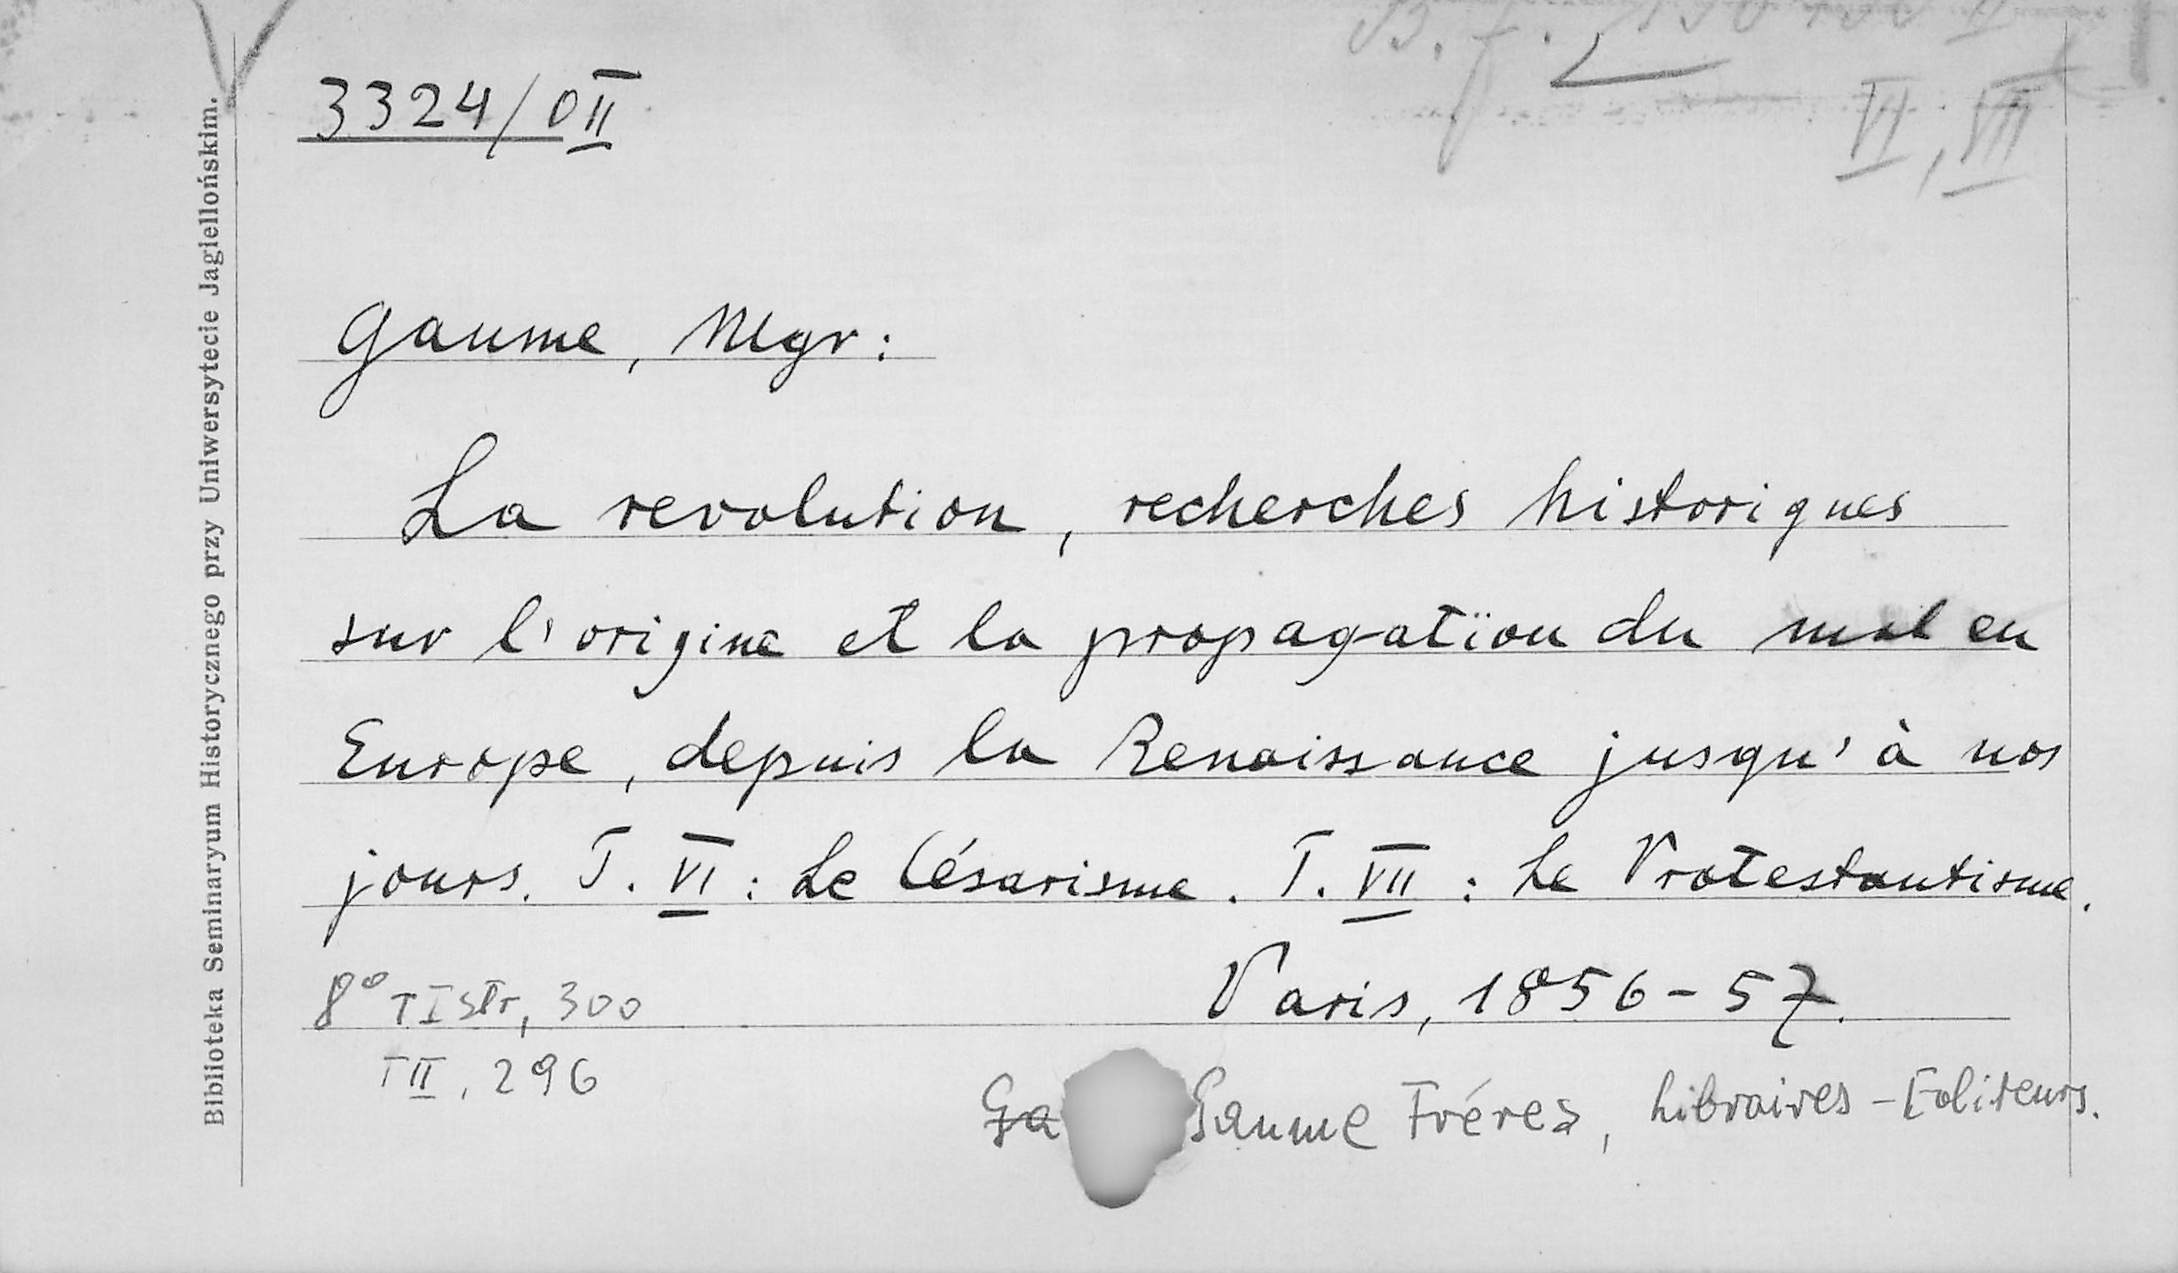 3324/0II
VI, VII
Gaume, Mgr:
La revolution, recherches historiques
sur l'origine et la propagation du mal en
Europe, depuis la Renaissance jusqu'à nos
jours. T. VI: Le Césarisme. T. VII: Le Protestantisme.
Paris, 1856-57.
8° T I str, 300
T II, 296
Ga Gaume Fréres, Libraires-Editeurs.
Biblioteka Seminaryum Historycznego przy Uniwersytecie Jagiellońskim.